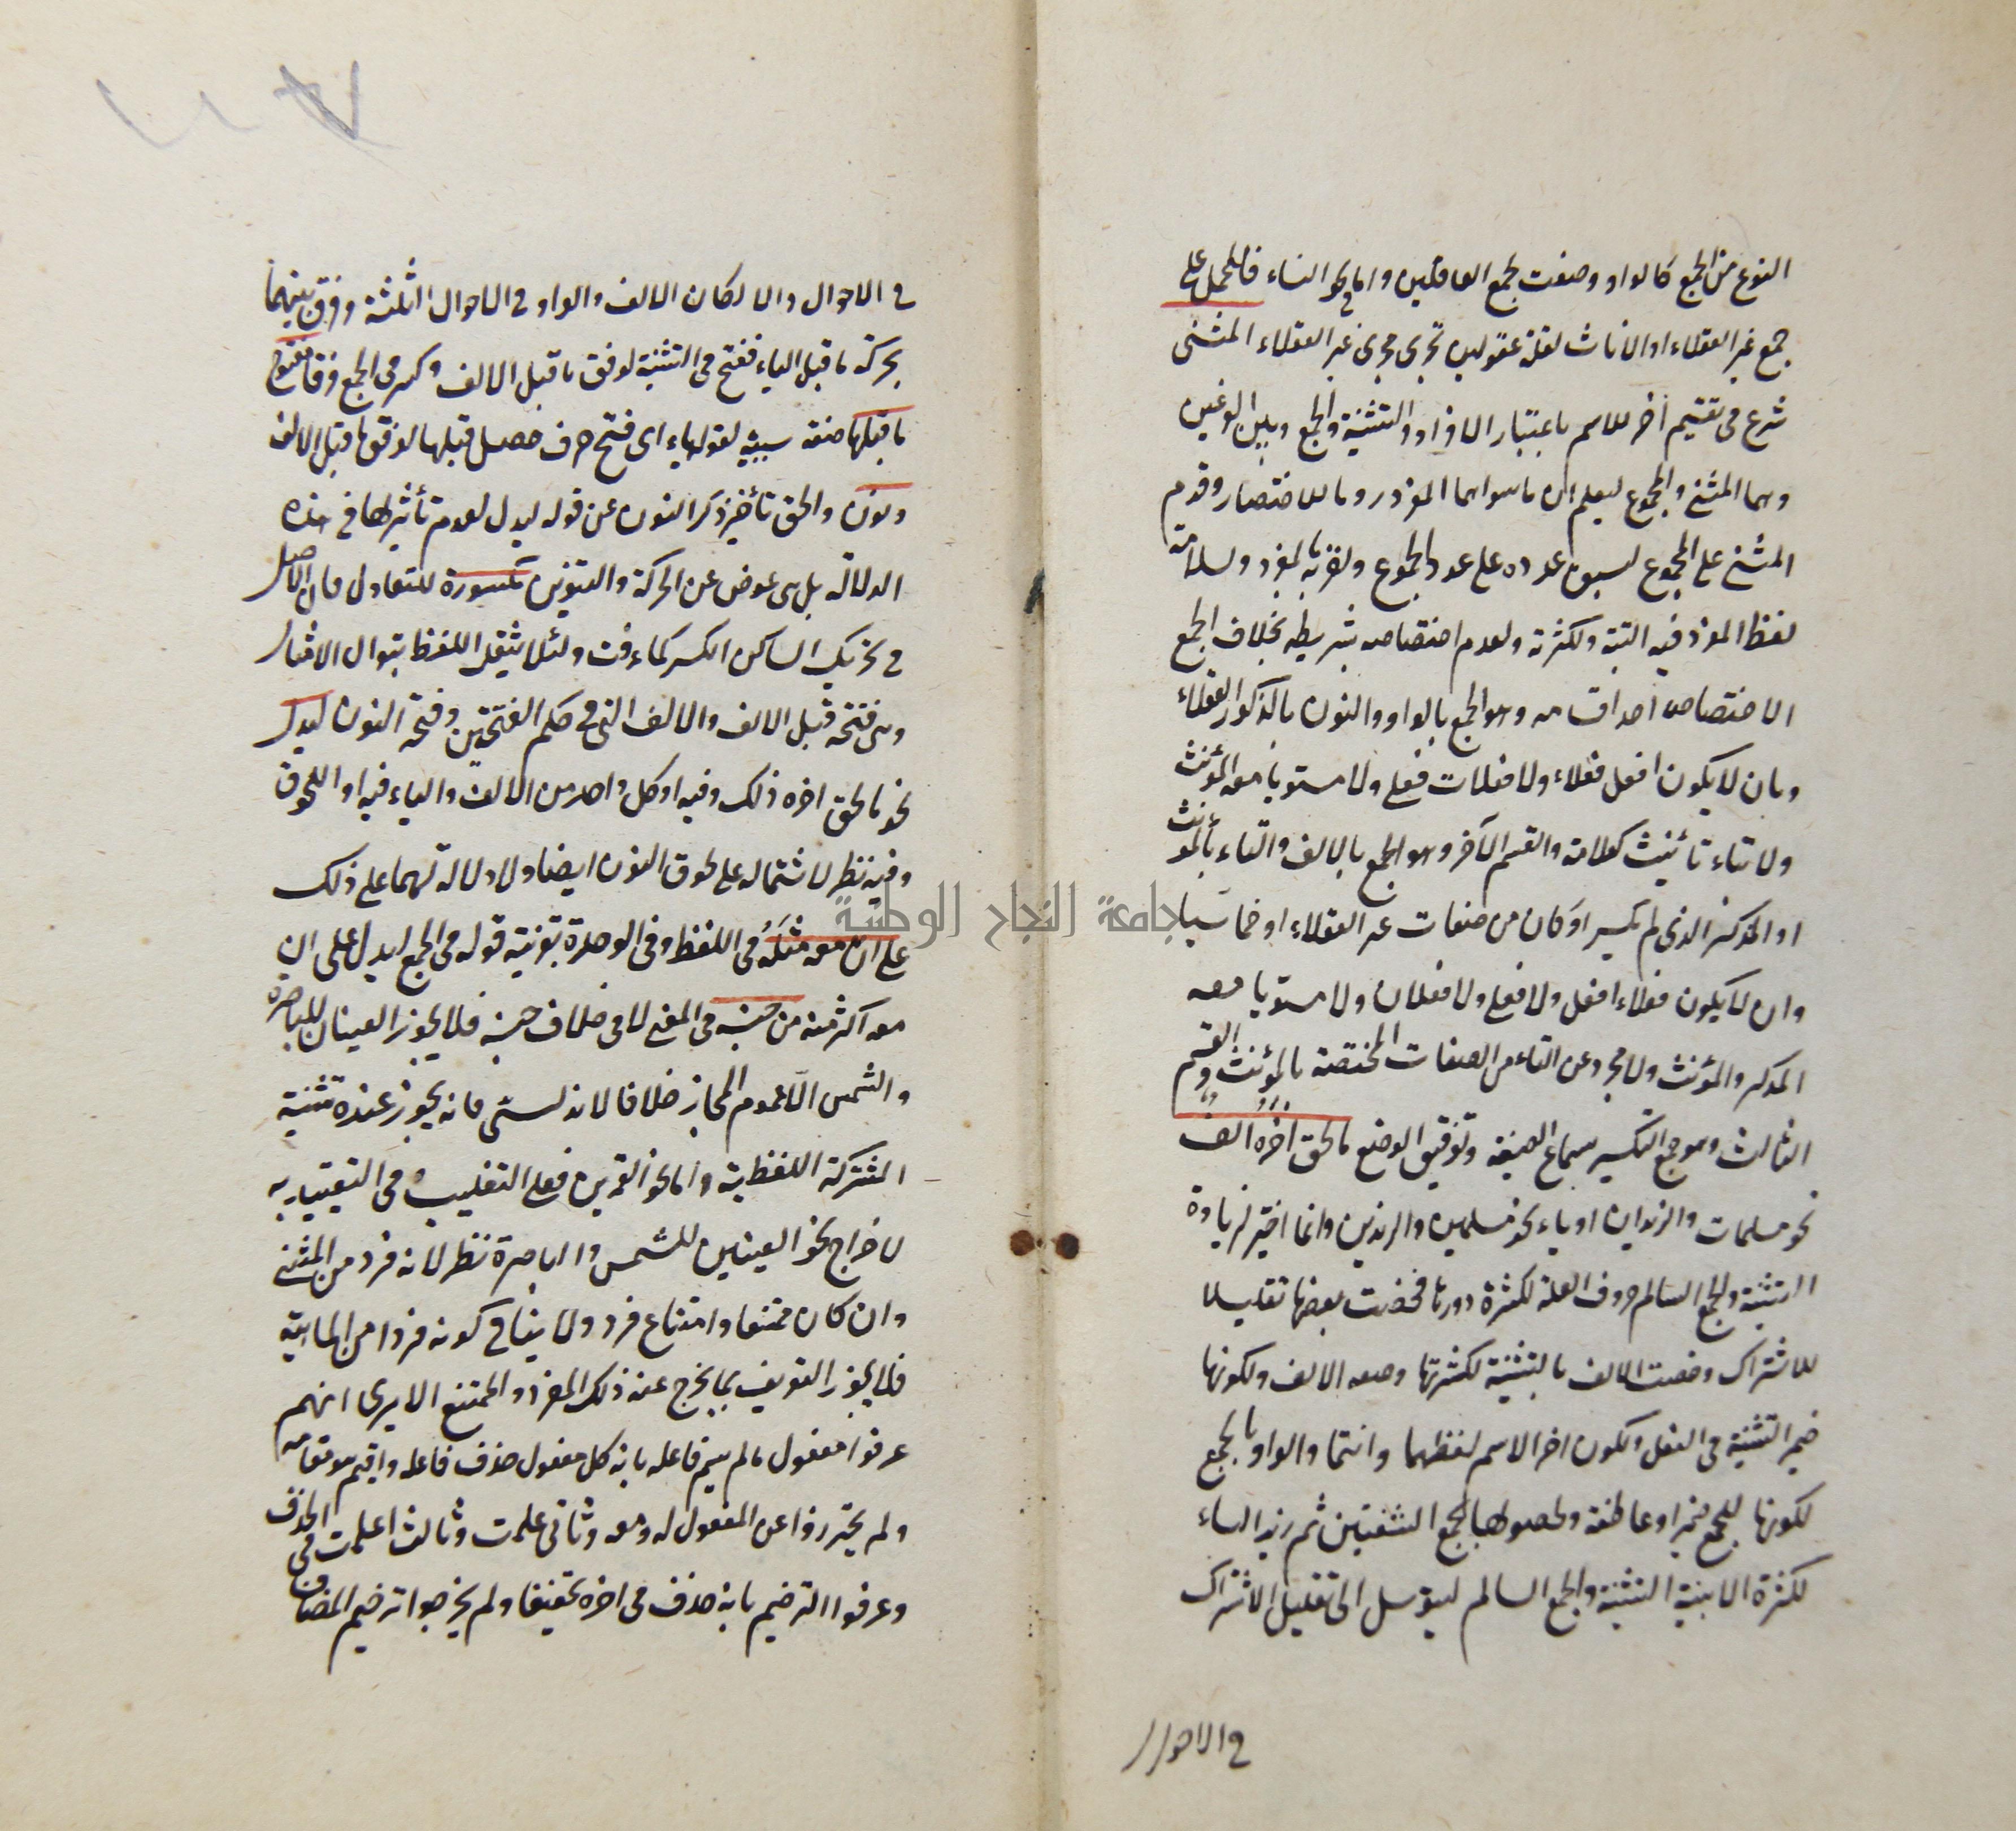 النوع من الجمع كالواو وضعت لجمع العاقلين واما في نحو النساء فللحمل على
جمع غير العقلاء اذ الاناث لقلة عقولهن تجرى مجرى غير العقلاء المثنى
شرع فى تقسيم اخر للاسم باعتبار الافراد والتثنية والجمع وبين النوعين
وهما المثنى والمجموع ليعلم ان ما سواهما المفرد روما للاختصار وقدم
المثنى على المجموع لسبق عدده على عدد المجموع ولقربه بالمفرد ولسلامة
لفظ المفرد فيه البتة ولكثرته ولعدم اختصاصه بشريطة بخلاف الجمع
الاختصاص احد اقسامه وهو الجمع بالواو والنون بالذكور العقلاء
وبان لا يكون افعل فعلاء ولا فعلان فعلى ولا مستويا معه المؤنث
ولا بتاء تأنيث كعلامة والقسم الآخر وهو الجمع بالالف والتاء بالمؤنث
او المذكر الذى لم يكسر او كان من صفات غير العقلاء او خماسيا
وان لا يكون فعلاء افعل ولا فعلى ولا فعلان ولا مستويا معه
المذكر والمؤنث ولا مجرد عن التاء من الصفات المختصة بالمؤنث والقسم
الثالث وهو جمع التكسير بسماع الصيغة وتوقيق الوضع ما لحق اخره الف
نحو مسلمات والزيدان او ياء نحو مسلمين والزيدين وانما اختير لزيادة
التثنية والجمع السالم حروف العلة لكثرة دورها فخصت بعضها تقليلا
للاشتراك وخصت الالف بالتثنية لكثرتها وخفة الالف ولكونها
ضمير التثنية فى الفعل ولكون اخر الاسم لفظهما وانتما والواو بالجمع
لكونها للجمع ضميرا وعاطفة ولحصولها بجمع الشفتين ثم زيد الياء
لكثرة الابنية التثنية والجمع السالم ليتوسل الى تقليل الاشتراك
فى الاحوال
فى الاحوال والا لكان الالف والواو فى الاحوال الثلثة وفرق بينهما
بحركة ما قبل الياء ففتح فى التثنية لوفق ما قبل الالف وكسر فى الجمع وفقا مفتوح
ما قبلها صفة سببية لقوله ياء اى فتح حرف حصل قبلها لوفق ما قبل الالف
ونون والحق تأخير ذكر النون عن قوله ليدل لعدم تأثيرها فى هذه
الدلالة بل هى عوض عن الحركة والتنوين مكسورة للتعادل فان الاصل
فى تحريك الساكن الكسر كما عرفت ولئلا يثقل اللفظ بتوالى الاثقال
وهى فتحة قبل الالف والالف التى فى حكم الفتحتين وفتحة النون ليدل
نحو ما لحق اخره ذلك وفيه او كل واحد من الالف والياء فيه او اللحوق
وفيه نظر لاشتماله على لحوق النون ايضا ولا دلالة لهما على ذلك
على ان معه مثله فى اللفظ وفى الوحدة بقرينة قوله فى الجمع ليدل على ان
معه اكثر منه من جنسه فى المعنى لا فى خلاف جنسه فلا يجوز العينان للباصرة
والشمس الا لعموم المجاز خلافا لاندلسى فانه يجوز عنده تثنية
المشتركة اللفظية واما نحو القمرين فعلى التغليب وفى التقييد به
لاخراج نحو العينين للشمس والباصرة نظر لانه فرد من المثنى
وان كان ممتنعا وامتناع فرد ولا ينافى كونه فردا من الماهية
فلا يجوز التعريف بما يخرج عنه ذلك المفرد والممتنع الا يرى انهم
عرفوا مفعول ما لم يسم فاعله بانه كل مفعول حذف فاعله واقيم هو مقامه
ولم يحترزوا عن المفعول له ومعه وثانى علمت وثالث اعلمت فى الحذف
وعرفوا الترخيم بانه حذف فى اخره تخفيفا ولم يخرجوا ترخيم المضاف
جامعة النجاح الوطنية